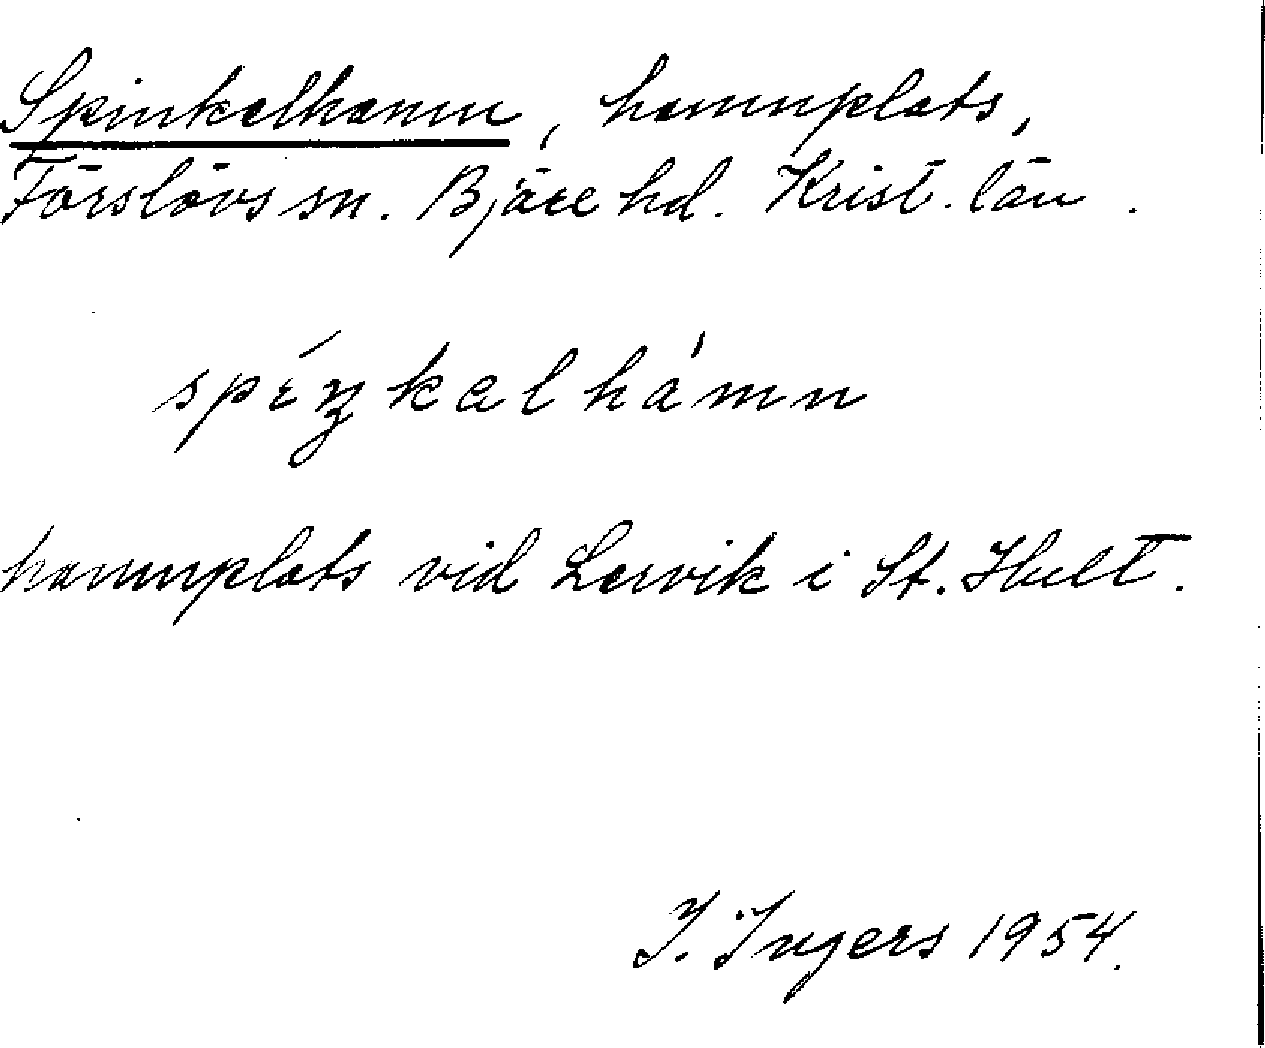 Spinkalhamn, hamnplats,
Förslövs sn. Bjäre hd. Krist. län.
spéŋkalhámn
hamnplats vid Lervik i St. Hult.
I. Ingers 1954.